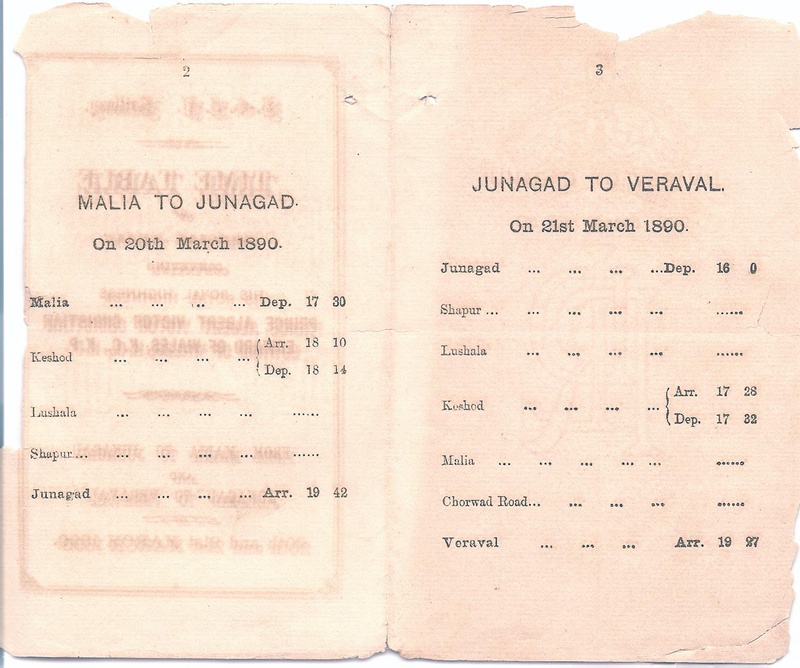 2
MALIA TO JUNAGAD.
On 20th March 1890.
Malia ... ... ... ... Dep. 17 30
Keshod ... ... ... ... Arr. 18 10
Dep. 18 14
Lushala ... ... ... ... ......
Shapur... ... ... ... ... ......
Junagad ... ... ... ... Arr. 19 42
3
JUNAGAD TO VERAVAL.
On 21st March 1890.
Junagad ... ... ... ...Dep. 16 0
Shapur ... ... ... ... ... ......
Lushala ... ... ... ... ......
Keshod ... ... ... ... Arr. 17 28
Dep. 17 32
Malia ... ... ... ... ... ......
Chorwad Road... ... ... ... ......
Veraval ... ... ... Arr. 19 27